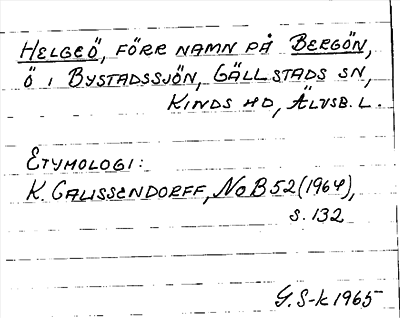 HELGEÖ, FÖRR NAMN PÅ BERGÖN,
Ö I BYSTADSSJÖN, GÄLLSTADS SN,
KINDS HD, ÄLVSB. L.
ETYMOLOGI:
K. CALISSENDORFF, NoB 52 (1964),
s. 132
G. S-k 1965